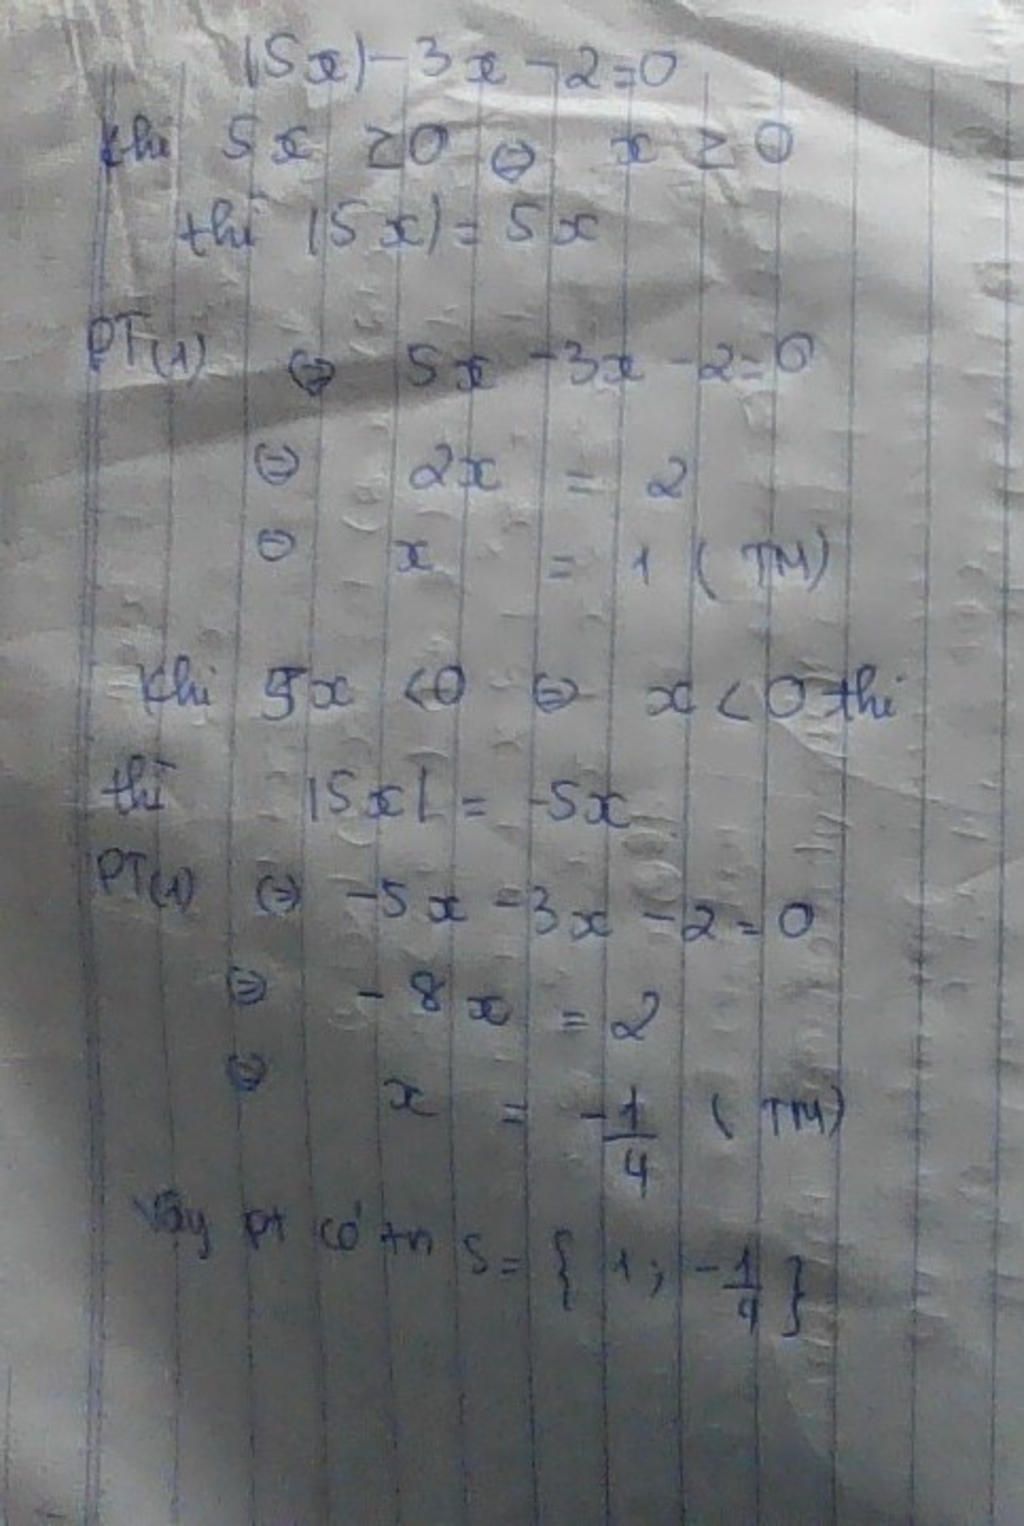 |5x|-3x-2=0
Khi 5x ≥0 ⇔ x ≥ 0
thì |5x|= 5x
PT(1) ⇔ 5x -3x -2=0
⇔ 2x = 2
⇔ x = 1 (TM)
Khi 5x <0 ⇔ x <0 thì
thì |5x|= -5x
PT(1) ⇔ -5x -3x -2=0
⇔ -8x = 2
⇔ x = -1/4 (TM)
Vậy pt có tn S= {1; -1/4}